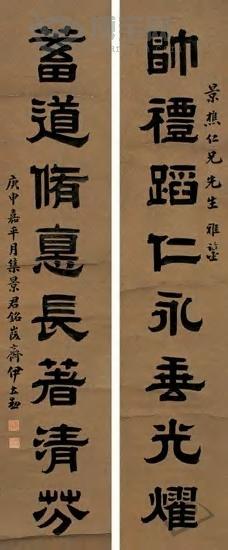 景樵仁兄先生雅鑒
帥禮蹈仁永垂光耀
蓄道脩悳長著清芬
庚申嘉平月集景君銘峻齋伊立勳